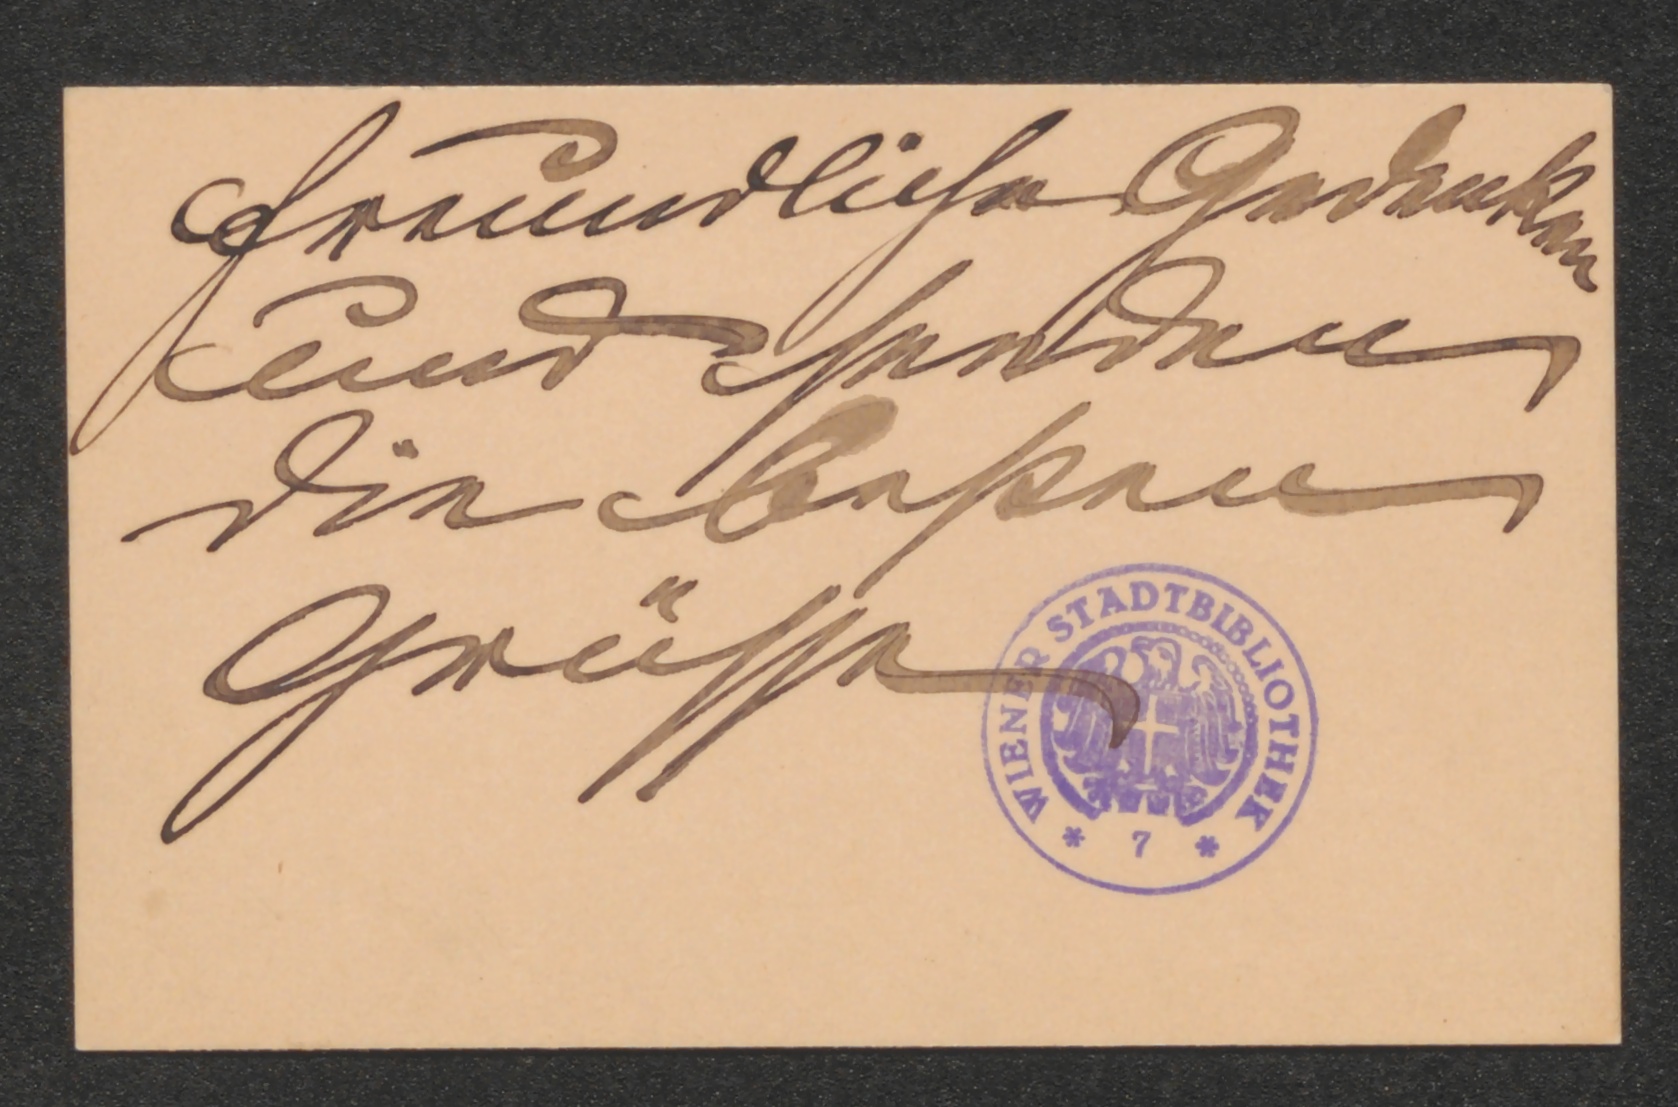 freundliche Gedenken
und senden
die besten
Grüsse
WIENER STADTBIBLIOTHEK
* 7 *